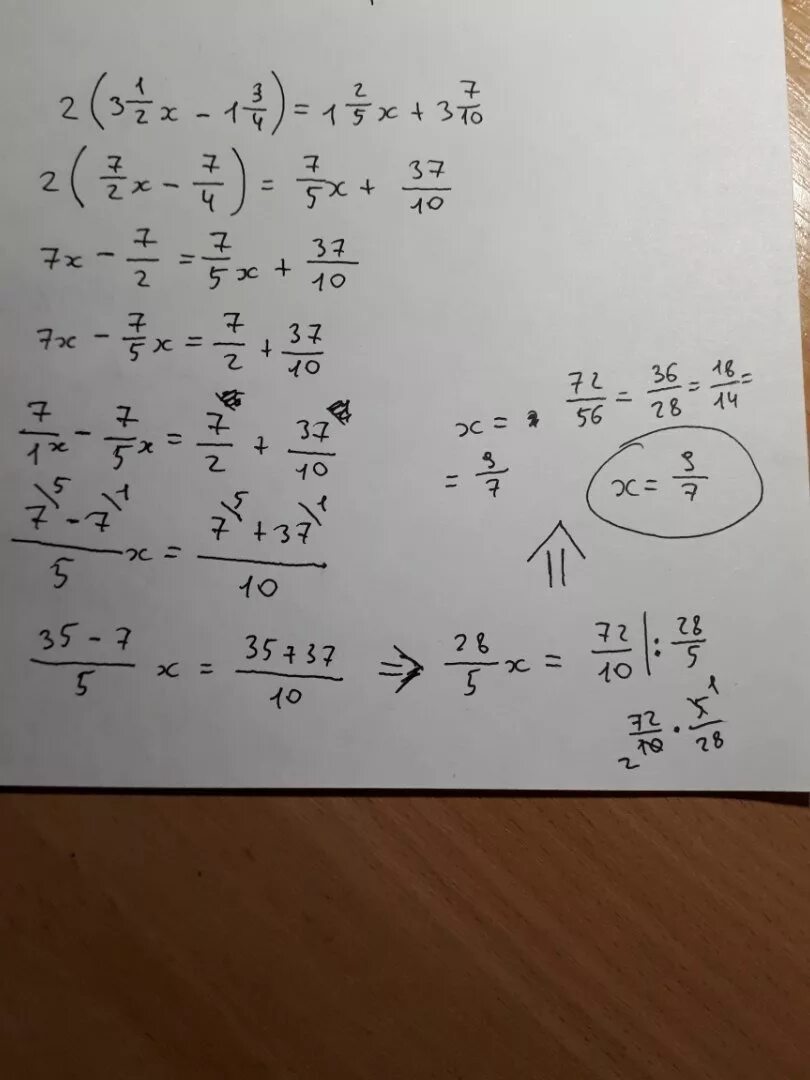 2(3 1/2 x - 1 3/4) = 1 2/5 x + 3 7/10
2(7/2 x - 7/4) = 7/5 x + 37/10
7x - 7/2 = 7/5 x + 37/10
7x - 7/5 x = 7/2 + 37/10
7/1 x - 7/5 x = 7/2 + 37/10
(7\5 - 7\1)/5 x = (7\5 + 37\1)/10
(35 - 7)/5 x = (35 + 37)/10 ⇒ 28/5 x = 72/10 | : 28/5
72/10 2 · 5/28 1
⇑
x = 72/56 = 36/28 = 18/14 =
= 9/7
x = 9/7